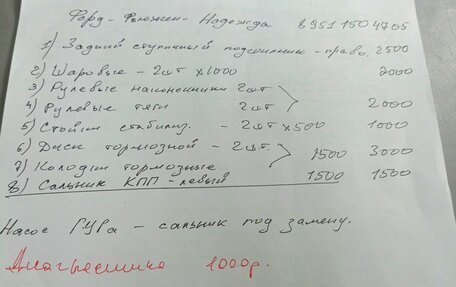 Форд-Фьюжен-Надежда 8 951 150 4705
1) Задний ступичный подшипник - право. 2500
2) Шаровые - 2шт х1000 2000
3) Рулевые наконечники 2шт
4) Рулевые тяги 2шт 2000
5) Стойки стабилиз. - 2шт х500 1000
6) Диск тормозной - 2шт.
7) Колодки тормозные 1500 3000
8) Сальник КПП - левый 1500 1500
Насос ГУРа - сальник под замену.
Диагностика 1000р.